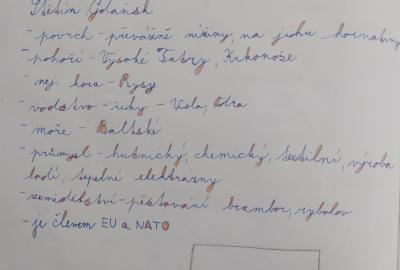 Štětín, Gdaňsk
- povrch - převážně nížiny, na jihu hornatiny
- pohoří - Vysoké Tatry, Krkonoše
- nej. hora - Rysy
- vodstvo - řeky - Visla, Odra
- moře - Baltské
- průmysl - hutnický, chemický, textilní, výroba
lodí, tepelné elektrárny
- zemědělství - pěstování brambor, rybolov
- je členem EU a NATO